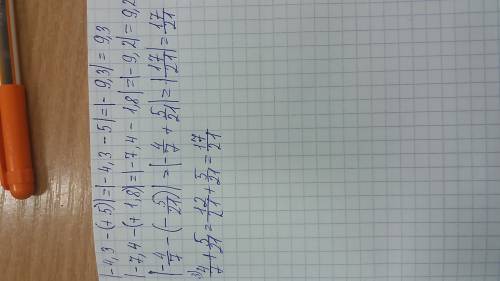 |-4,3-(+5)|=|-4,3-5|=|-9,3|=9,3
|-7,4-(+1,8)|=|-7,4-1,8|=|-9,2|=9,2
|-4/7-(-5/21)|=|-4/7+5/21|=|17/21|=17/21
4/7+5/21=12/21+5/21=17/21